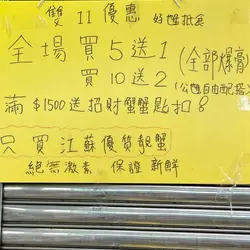 雙 11 優惠 好蟹抵食
全場買5送1 (全部爆膏)
買10送2 (公乸自由配搭)
滿 $1500 送招財蟹蟹匙扣 8
只買江蘇優質靚蟹
絕無激素 保證新鮮